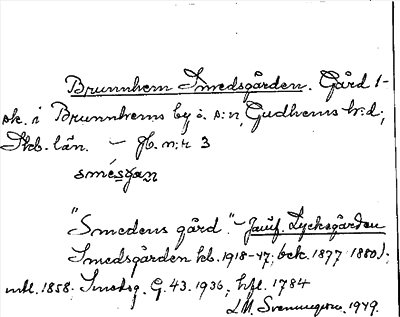 Brunnhem Smedsgården. Gård 1-
sk. i Brunnhems by o. s:n, Gudhems h:d,
Skb. län. – Jb. n:r 3
smésgan
"Smedens gård." – Jämf. Lycksgården
Smedsgården kb. 1918-47; (eck. 1877 1880);
mtl. 1858. Smedsg. G. 43. 1936; hfl. 1784
1949.